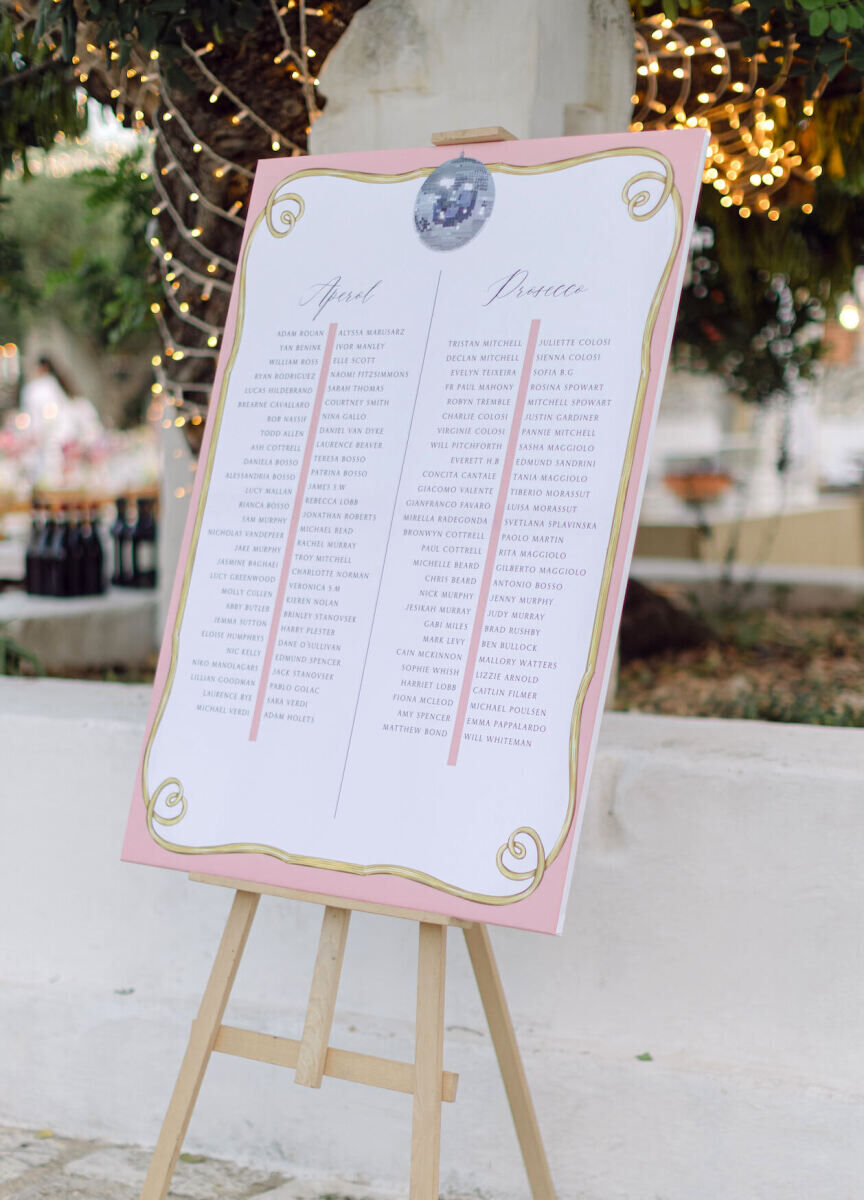 Aperol
ADAM ROUAN
YAN BENINK
WILLIAM ROSS
RYAN RODRIGUEZ
LUCAS HILDEBRAND
BREARNE CAVALLARO
ROB NASSIF
TODD ALLEN
ASH COTTRELL
DANIELA BOSSO
ALESSANDRIA BOSSO
LUCY MALLAN
BIANCA KING
SAM MURPHY
NICHOLAS VANDEPEER
JAKE MURPHY
JASMINE BAGHAEI
LUCY GREENWOOD
MOLLY CULLEN
ABBY BUTLER
JEMMA SUTTON
ELOISE HUMPHRYS
NIC KELLY
NIKO MANOLAGARS
LILLIAN GOODMAN
LAURENCE BYE
MICHAEL VERDI
ALYSSA MARUSARZ
IVOR MANLEY
ELLE SCOTT
NAOMI FITZSIMMONS
SARAH THOMAS
COURTNEY SMITH
NINA GALLO
DANIEL VAN DYKE
LAURENCE BEAVER
TERESA BOSSO
PATRINA BOSSO
JAMES S.W
REBECCA LOBB
JONATHAN ROBERTS
MICHAEL READ
RACHEL MURRAY
TROY MITCHELL
CHARLOTTE NORMAN
VERONICA S.M
KIEREN NOLAN
BRINLEY STANOVSEK
HARRY PLESTER
DANE O'SULLIVAN
EDMUND SPENCER
JACK STANOVSEK
PABLO GOLAC
SARA VERDI
ADAM HOLETS
Prosecco
TRISTAN MITCHELL
DECLAN MITCHELL
EVELYN TEIXEIRA
FR PAUL MAHONY
ROBYN TREMBLE
CHARLIE COLOSI
VIRGINIE COLOSI
WILL PITCHFORTH
EVERETT H.B
CONCITA CANTALE
GIACOMO VALENTE
GIANFRANCO FAVARO
MIRELLA RADEGONDA
BRONWYN COTTRELL
PAUL COTTRELL
MICHELLE BEARD
CHRIS BEARD
NICK MURPHY
JESIKAH MURRAY
GABI MILES
MARK LEVY
CAIN MCKINNON
SOPHIE WHISH
HARRIET LOBB
FIONA MCLEOD
AMY SPENCER
MATTHEW BOND
JULIETTE COLOSI
SIENNA COLOSI
SOFIA B.G
ROSINA SPOWART
MITCHELL SPOWART
JUSTIN GARDINER
PANNIE MITCHELL
SASHA MAGGIOLO
EDMUND SANDRINI
TANIA MAGGIOLO
TIBERIO MORASSUT
LUISA MORASSUT
SVETLANA SPLAVINSKA
PAOLO MARTIN
RITA MAGGIOLO
GILBERTO MAGGIOLO
ANTONIO BOSSO
JENNY MURPHY
JUDY MURRAY
BRAD RUSHBY
BEN BULLOCK
MALLORY WATTERS
LIZZIE ARNOLD
CAITLIN FILMER
MICHAEL POULSEN
EMMA PAPPALARDO
WILL WHITEMAN